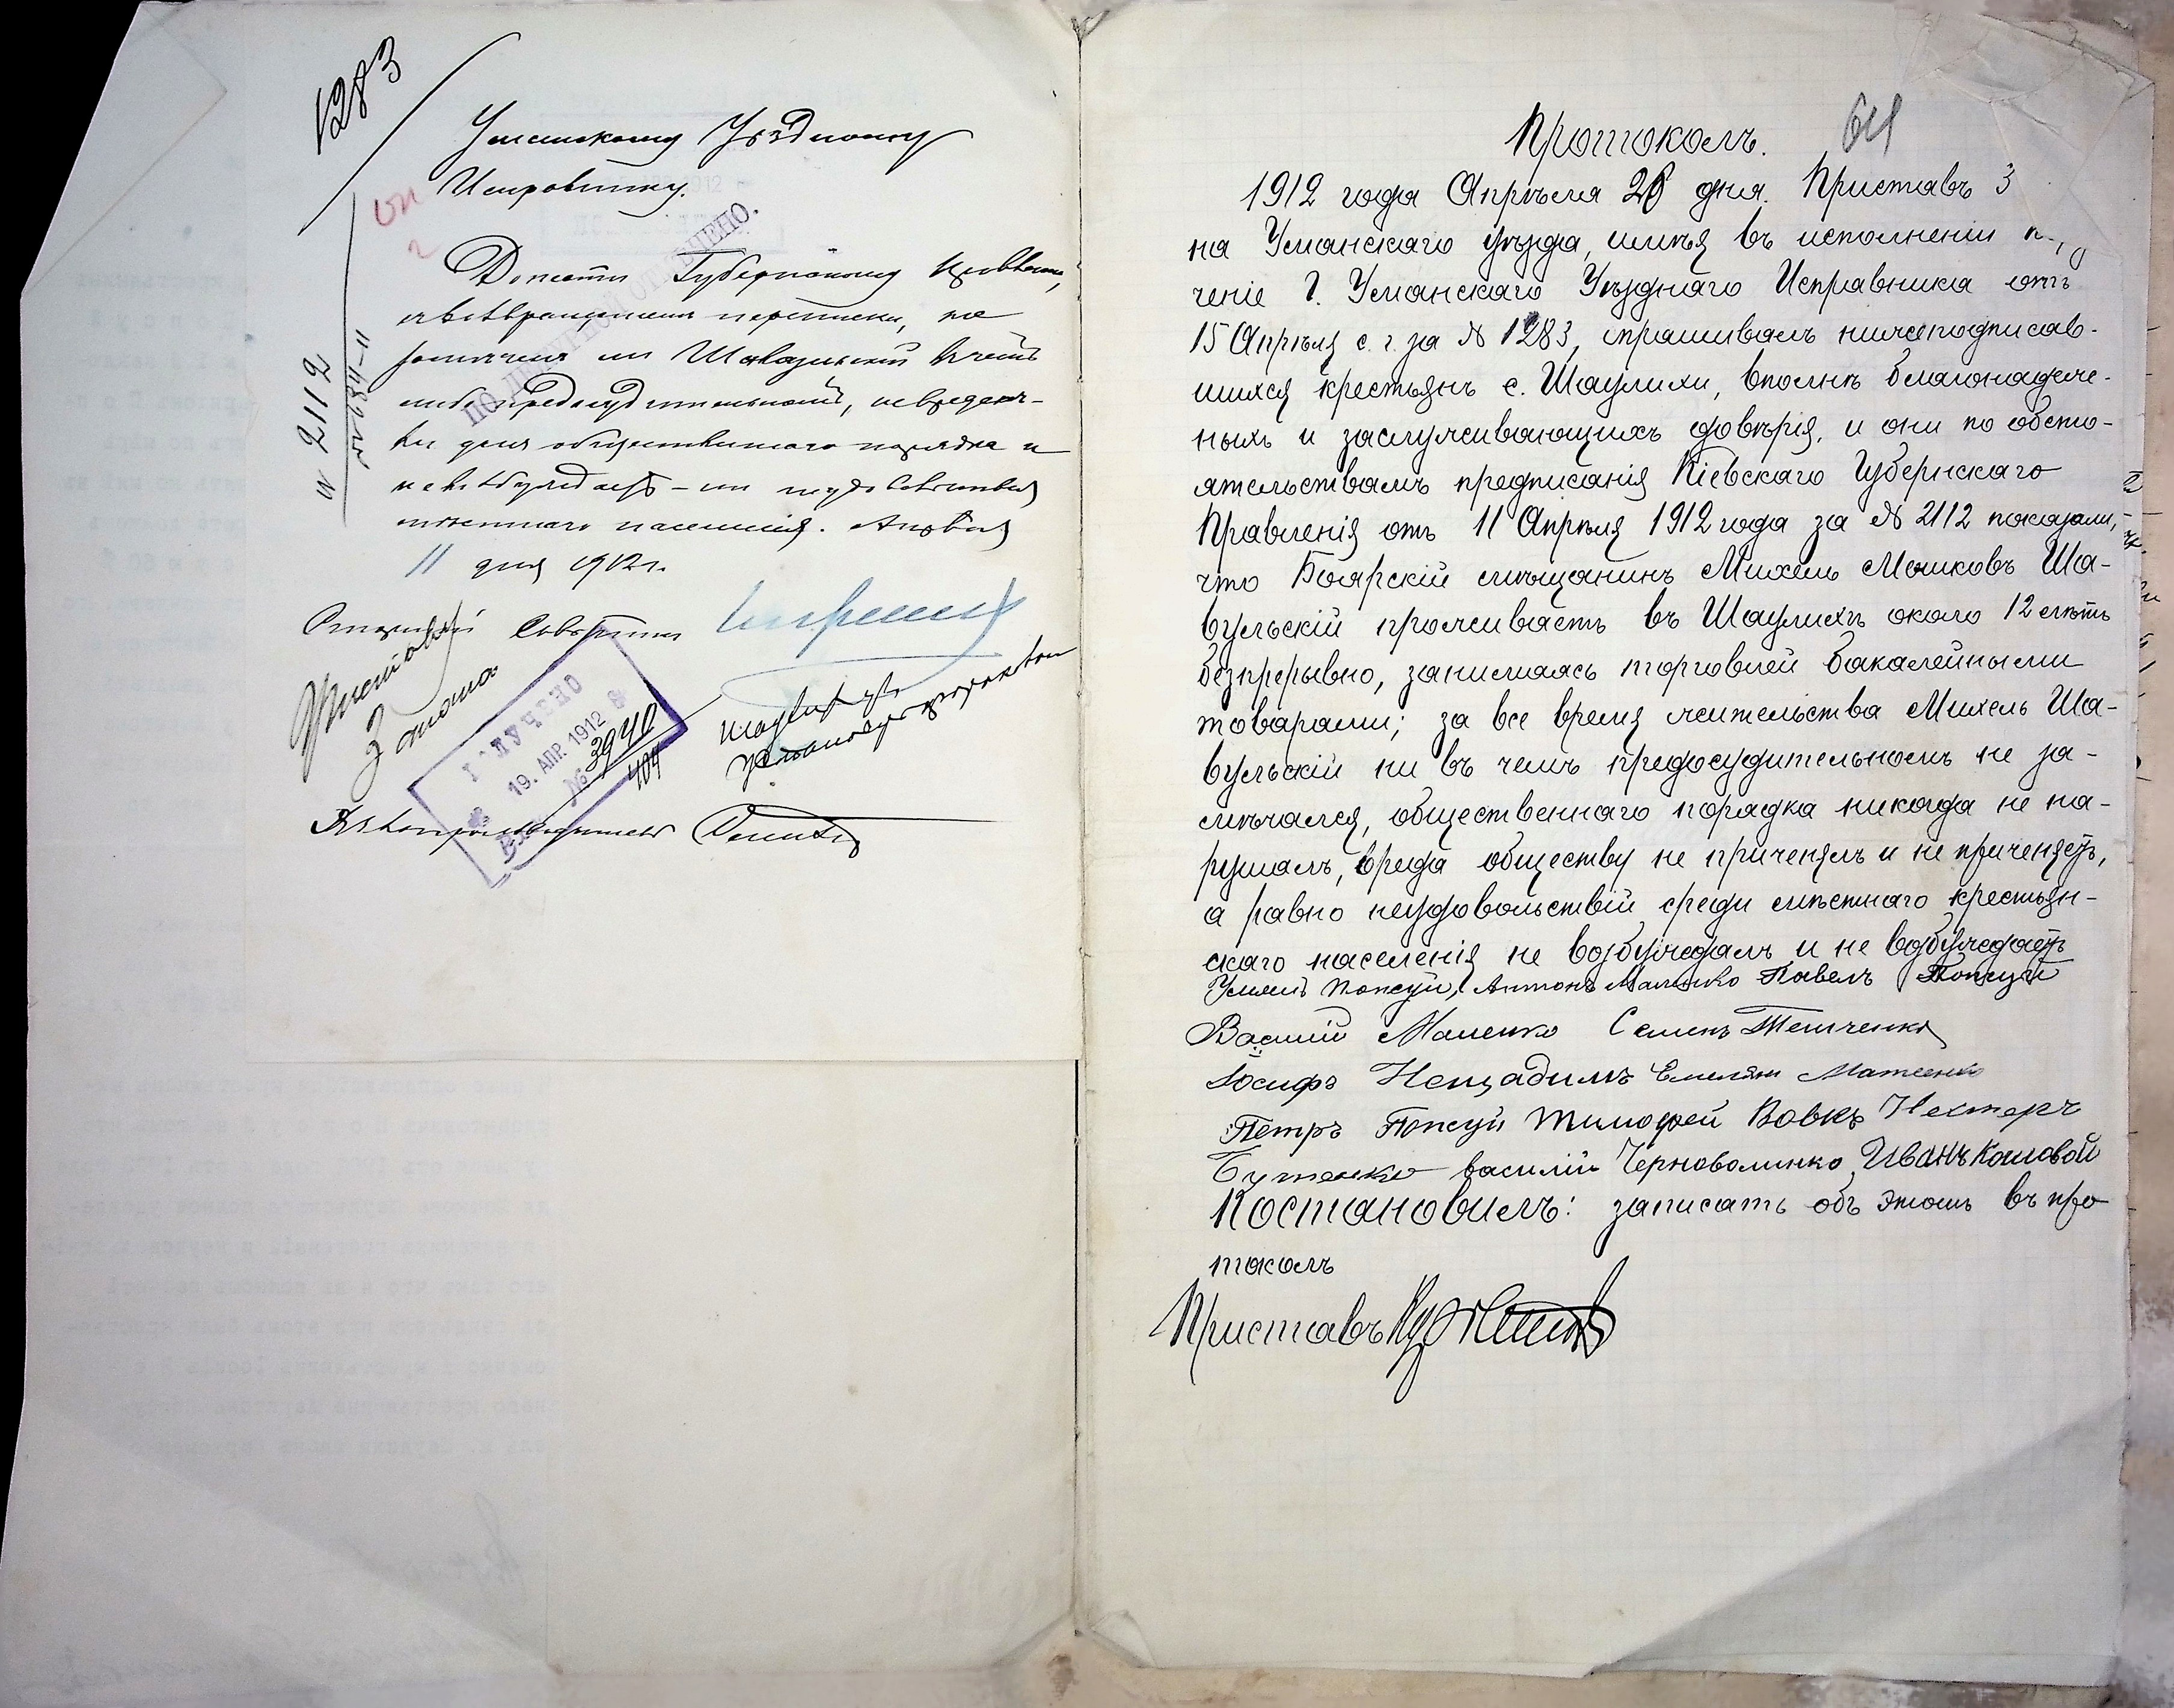 1283
Уманскому Уѣздному
Исправнику.
ПО ДЕЛОПР. ОТМѢЧЕНО.
№ 2112
Донести Губернскому Правленію,
съ возвращеніемъ переписки, не
замѣченъ ли Шавульскій въ чемъ
либо предосудительномъ, не вреденъ-
ли для общественнаго порядка и
не возбуждаетъ-ли неудовольствія
мѣстнаго населенія. Апрѣля
11 дня 1912 г.
Старшій Совѣтникъ
Приставу
3 стана
ПОЛУЧЕНО
19. АПР. 1912
№ 3940
404
Дѣлопроизводитель
Протоколъ. 64
1912 года Апрѣля 26 дня. Приставъ 3
на Уманскаго уѣзда, имѣя въ исполненіи
ченіе Г. Уманскаго Уѣзднаго Исправника отъ
15 Апрѣля с. г. за № 1283, спрашивалъ нижеподписав-
шихся крестьянъ с. Шаулихи, вполнѣ благонадеж-
ныхъ и заслуживающихъ довѣрія, и они по обсто-
ятельствамъ предписанія Кіевскаго Губернскаго
Правленія отъ 11 Апрѣля 1912 года за № 2112 показали,
что Боярскій мѣщанинъ Михель Мошковъ Ша-
вульскій проживаетъ въ Шаулихѣ около 12 лѣтъ
безпрерывно, занимаясь торговлей бакалейными
товарами; за все время жительства Михель Ша-
вульскій ни въ чемъ предосудительномъ не за-
мѣчался, общественнаго порядка никогда не на-
рушалъ, вреда обществу не приченялъ и не приченяетъ,
а равно неудовольствій среди мѣстнаго крестьян-
скаго населенія не возбуждалъ и не возбуждаетъ
Попсуй, Антонъ Маленко Павелъ Попсуй
Василій Маленко Семенъ Темченко
Іосифъ Нещадимъ Емельян Матвенко
Петръ Попсуй Тимофей Вовкъ Нехтеръ
Бутенко василій Черноволинко Иванъ Кошовой
Постановилъ: записать объ этомъ въ про
токолъ
Приставъ